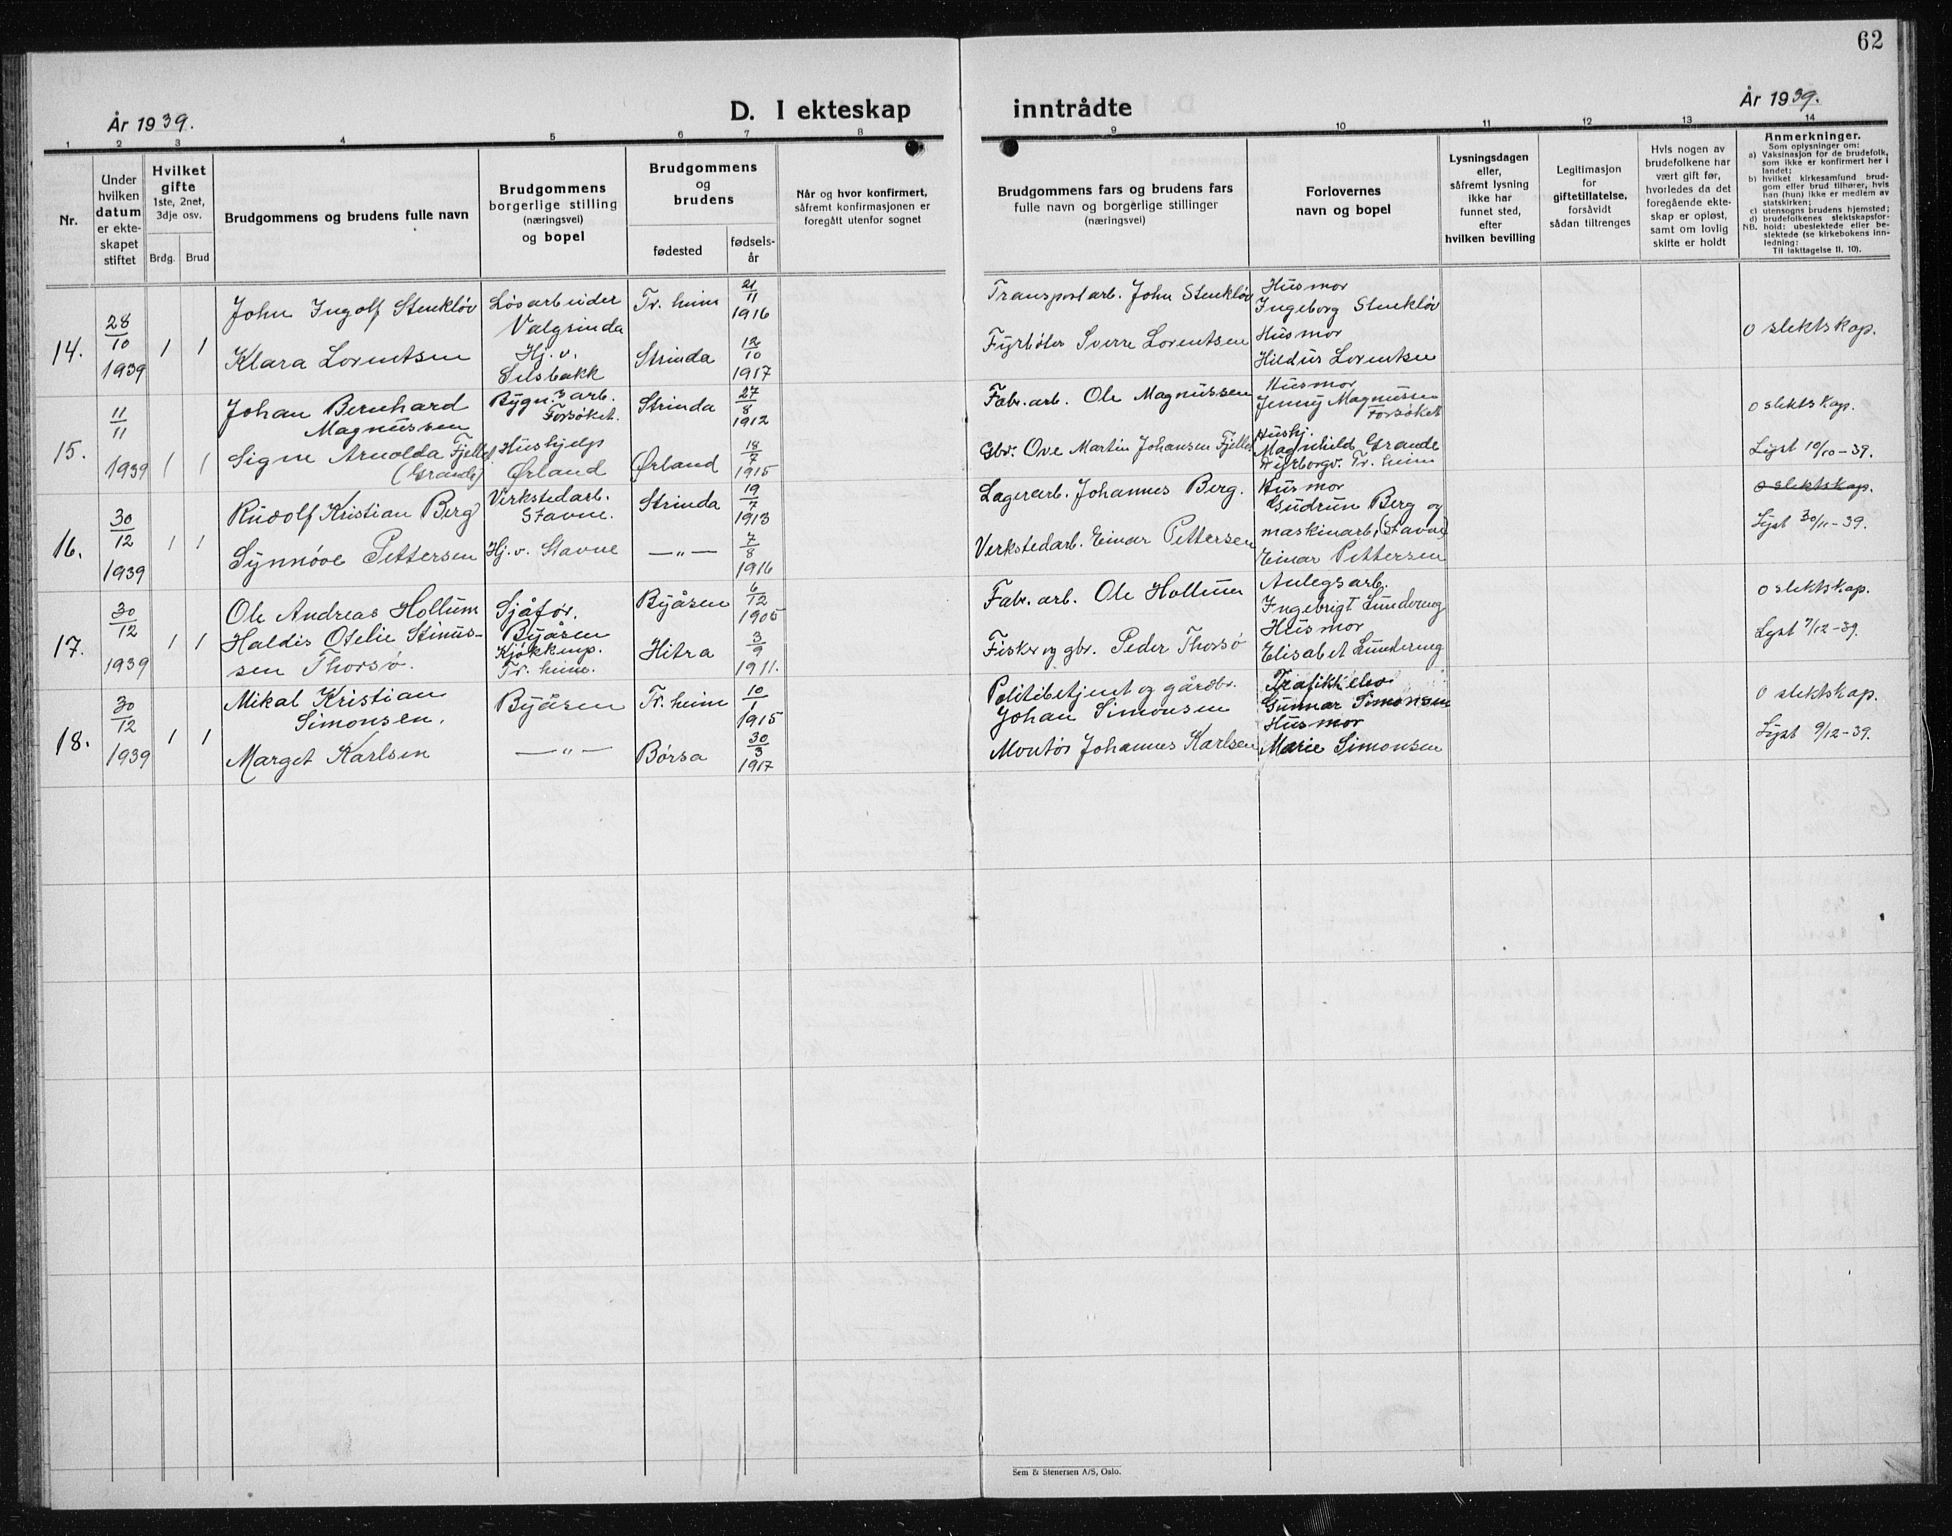 62
År 1939.
D. I ekteskap
inntrådte
År 1939.
1 2 3 4 5 6 7 8 9 10 11 12 13 14
Nr.
Under hvilken datum er ekteskapet stiftet
Hvilket gifte 1ste, 2net, 3dje osv.
Brdg. Brud
Brudgommens og brudens fulle navn
Brudgommens borgerlige stilling (næringsvei) og bopel
Brudgommens og brudens
fødested
fødsels-år
Når og hvor konfirmert, såfremt konfirmasjonen er foregått utenfor sognet
Brudgommens fars og brudens fars fulle navn og borgerlige stillinger (næringsvei)
Forlovernes navn og bopel
Lysningsdagen eller, såfremt lysning ikke har funnet sted, efter hvilken bevilling
Legitimasjon for giftetillatelse, forsåvidt sådan tiltrenges
Hvis nogen av brudefolkene har vært gift før, hvorledes da det foregående ekteskap er opløst, samt om lovlig skifte er holdt
Anmerkninger.
Som oplysninger om:
a) Vaksinasjon for de brudefolk, som ikke er konfirmert her i landet;
b) hvilket kirkesamfund brudgom eller brud tilhører, hvis han (hun) ikke er medlem av statskirken;
c) utensogns brudens hjemsted;
d) brudefolkenes slektskapsforhold: ubeslektede eller beslektede (se kirkebokens innledning:
NB.
Til iakttagelse II. 10).
14. 28/10 1939 1 1
John Ingolf Stenkløv Løsarbeider Valgrinda Tr.heim 21/11 1916
Klara Lorentsen Hj. v. Selsbakk Strinda 12/10 1917
Transportarb. John Stenkløv
Fyrbøter Sverre Lorentsen
Husmor
Ingeborg Stenkløv
Husmor
Hildur Lorentsen
0 slektskap.
15. 11/11 1939 1 1
Johan Bernhard Magnussen Bygn.arb. Forsøket. Strinda 27/8 1912
Signe Arnolda Fjellet (Grande) Hushjelp Ørland Ørland 18/7 1915
Fabr. arb. Ole Magnussen
Gbr. Ove Martin Johansen Fjellet
Husmor
Jenny Magnusen
Forsøket
Hushj.
Magnhild Grande
Dyrborgv. Tr.heim
0 slektskap.
Lyst 10/10-39.
16. 30/12 1939 1 1
Rudolf Kristian Berg Verkstedarb. Stavne. Strinda 19/7 1913
Synnøve Pettersen Hj. v. Stavne —"— 7/8 1916
Lagerarb. Johannes Berg.
Verkstedarb. Einar Pettersen
Husmor
Gudrun Berg og
maskinarb. (Stavne)
Einar Pettersen
0 slektskap.
Lyst 30/11-39.
17. 30/12 1939 1 1
Ole Andreas Hollum Sjåfør. Byåsen Byåsen 6/12 1905
Haldis Otelie Stinus-
sen Thorsø. Kjøkkenp. Tr. heim. Hitra 3/9 1911.
Fabr. arb. Ole Hollum
Fisker og gbr. Peder Thorsø
Anlegsarb.
Ingebrigt Lundemg
Husmor
Elisabet Lundemg
0 slektskap.
Lyst 7/12-39.
18. 30/12 1939 1 1
Mikal Kristian Simonsen. Byåsen Tr. heim 10/1 1915
Marget Karlsen —"— Børsa 30/3 1917
Politibetjent og gårdbr.
Johan Simonsen
Montør Johannes Karlsen
Trafikkelev
Gunnar Simonsen
Husmor
Marie Simonsen
0 slektskap.
Lyst 9/12-39.
Sem & Stenersen A/S, Oslo.